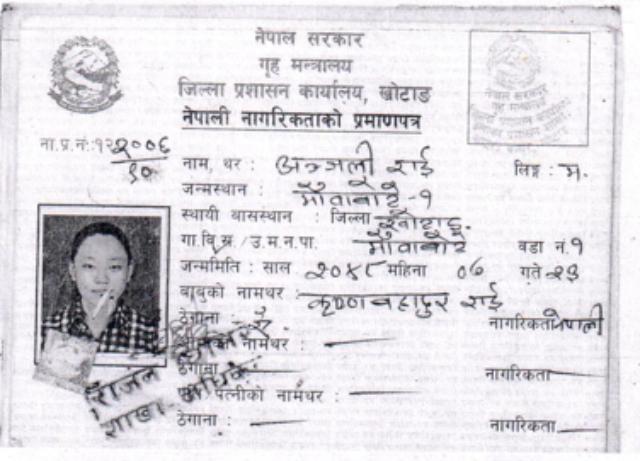 नेपाल सरकार
गृह मन्त्रालय
जिल्ला प्रशासन कार्यालय, खोटाङ
नेपाली नागरिकताको प्रमाणपत्र
ना.प्र.नं:१२२००६
९०
नाम, थर : अञ्जली राई लिङ्ग : म.
जन्मस्थान : -१
स्थायी बासस्थान : जिल्ला खोटाङ्ग.
गा.वि.स./उ.म.न.पा. वडा नं.१
जन्ममिति : साल २०४८ महिना ०६ गते २३
बाबुको नामथर : कृष्ण बहादुर राई
ठेगाना : ऐ नागरिकता नेपाली
नामथर :
ठेगाना नागरिकता
पत्नीको नामथर :
ठेगाना : नागरिकता
शाखा